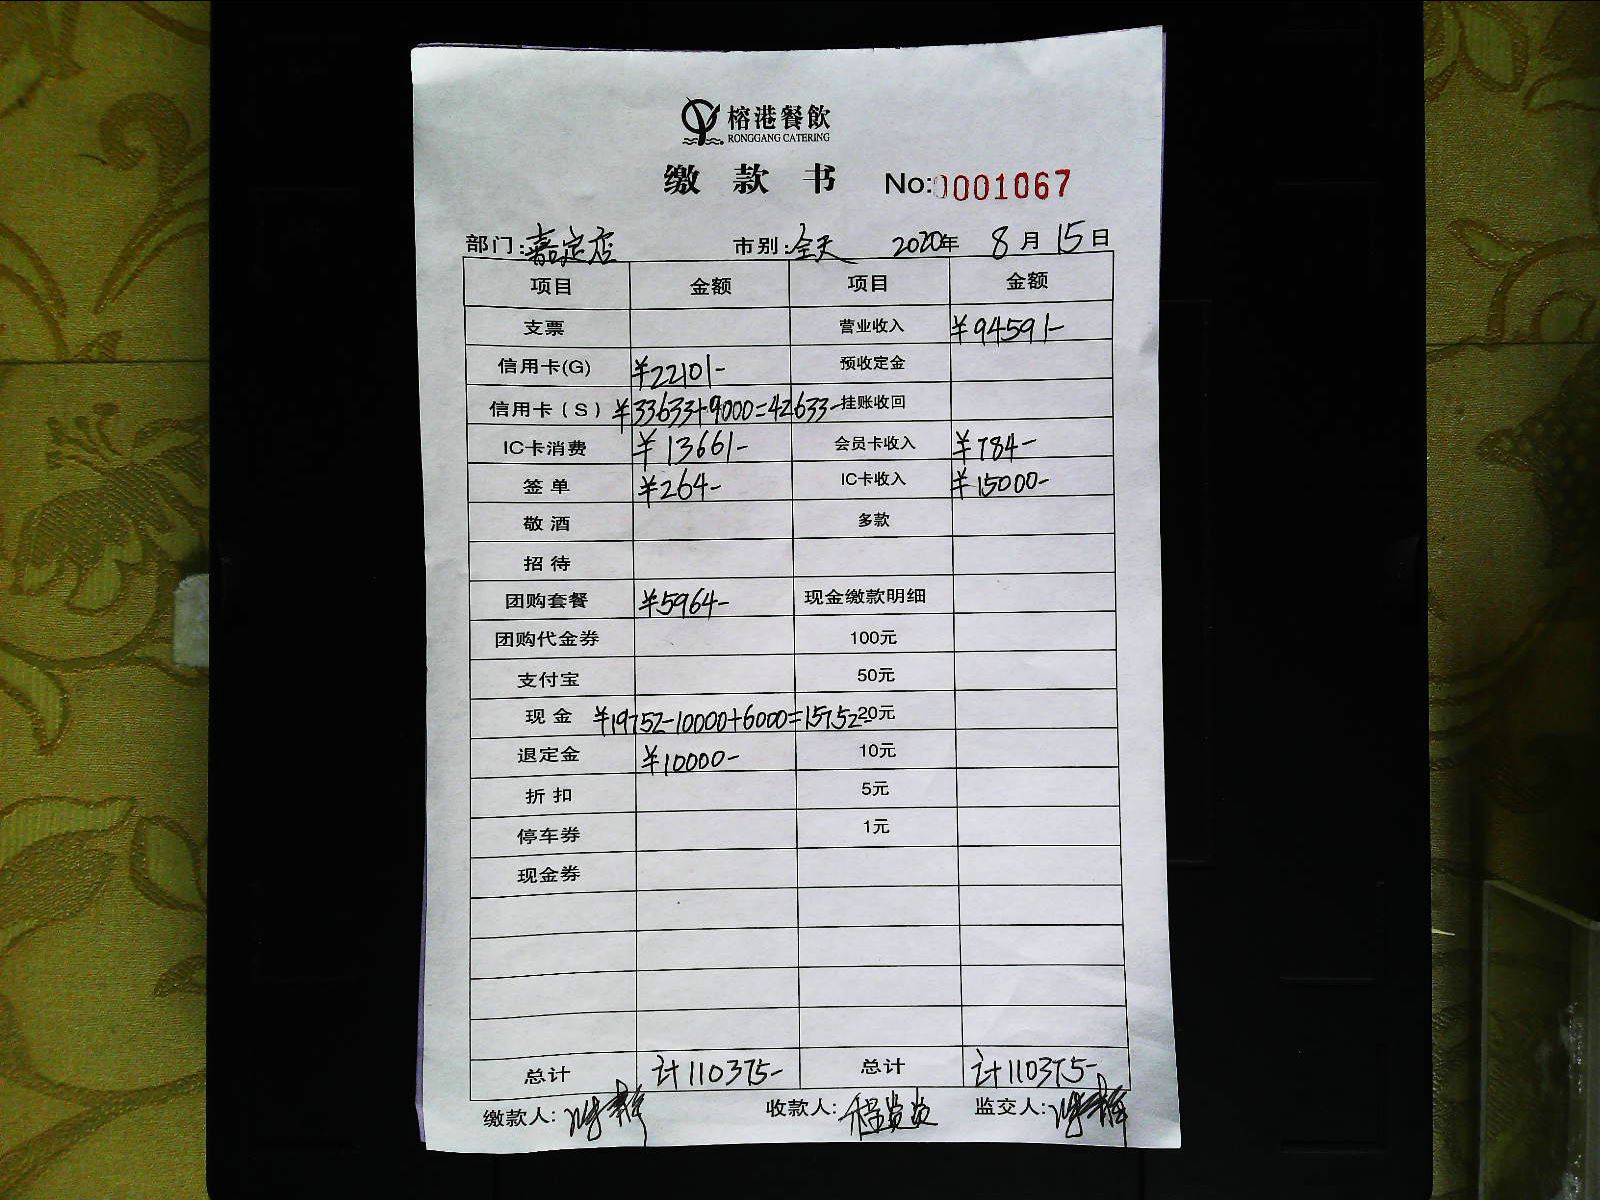 榕港餐飲
RONGGANG CATERING
缴款书 No:0001067
部门:嘉定店 市别:全天 2020年 8月15日
项目 金额 项目 金额
支票 营业收入 ¥94591-
信用卡(G) ¥22101- 预收定金
信用卡(S) ¥33633+9000=42633- 挂账收回
IC卡消费 ¥13661- 会员卡收入 ¥784-
签单 ¥264- IC卡收入 ¥15000-
敬酒 多款
招待
团购套餐 ¥5964- 现金缴款明细
团购代金券 100元
支付宝 50元
现金 ¥19752-10000+6000=15752- 20元
退定金 ¥10000- 10元
折扣 5元
停车券 1元
现金券
总计 计110375- 总计 计110375-
缴款人: 收款人: 监交人: